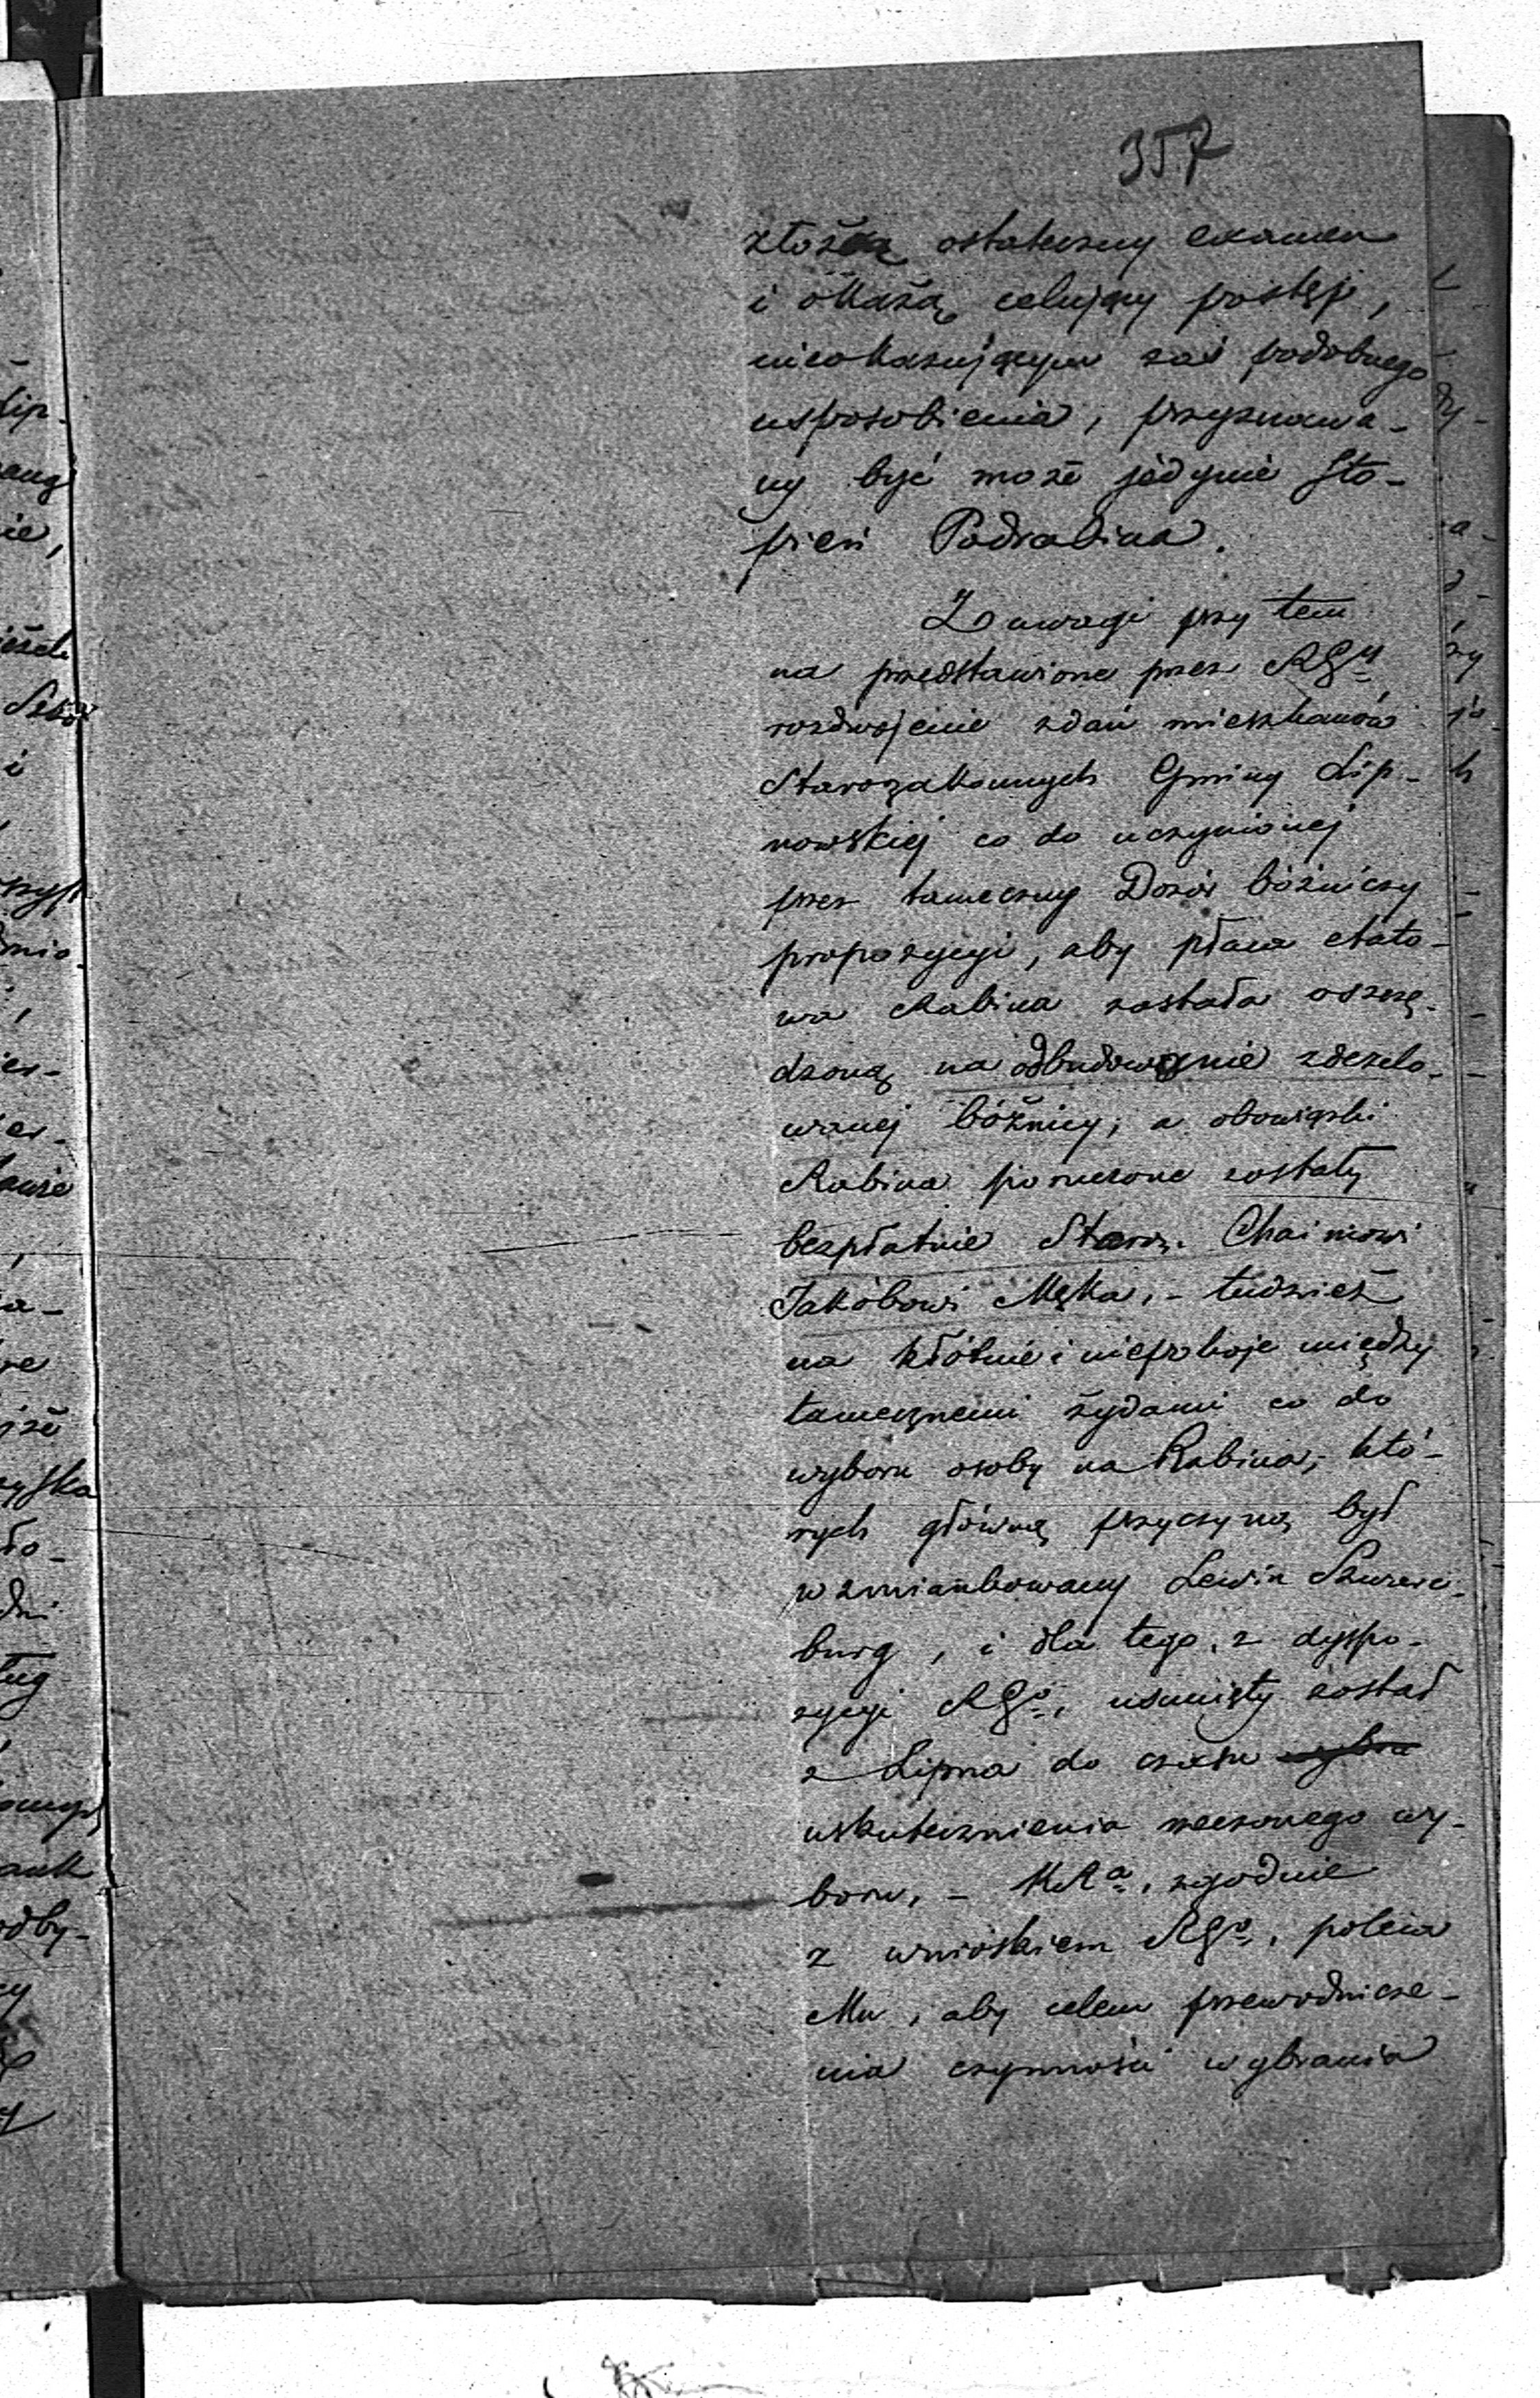 357
złożą ostateczny examen
i okażą celujący postęp,
nieokazującym zaś podobnego
usposobienia, przyznawa-
ny być może jedynie sto-
pień Podrabina.
Z uwagi przy tem
na przedstawione przez RGu
rozdwojenie zdań mieszkanców
Starozakonnych Gminy Lip-
nowskiej co do uczynionej
przez tameczny Dozór bóźniczy
propozycyi, aby płaca etato-
wa Rabina została oszczę-
dzoną na odbudowanie zdezelo-
wanej bóżnicy; a obowiązki
Rabina poruczone zostały
bezpłatnie Staroz. Chaimowi
Jakóbowi Męka, - tudzież
na kłótnie i niepokoje między
tamecznemi żydami co do
wyboru osoby na Rabina, któ-
rych główną przyczyną był
wzmiankowany Lewin
burg, i dla tego, z dyspo-
zycyi RGo, usunięty został
z Lipna do czasu wybra
uskutecznienia rzeczonego wy-
boru, - KRa, zgodnie
z wnioskiem RGo, poleca
Mu, aby celem przewodnicze-
nia czynności wybrania